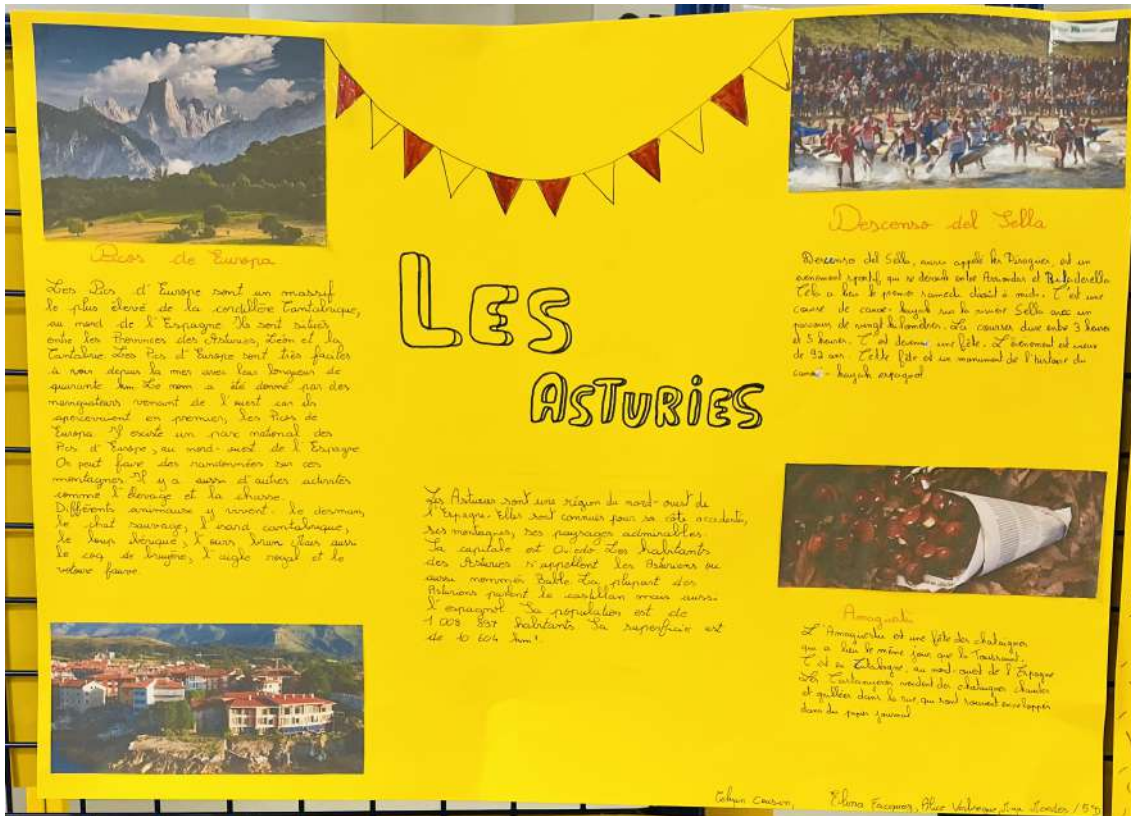 Picos de Europa
Les Pics d'Europe sont un massif
le plus élevé de la cordillère Cantabrique,
au nord de l'Espagne. Ils sont situés
entre les Provinces des Asturies, Léon et la
Cantabrie. Les Pics d'Europe sont très faciles
à voir depuis la mer avec leur longueur de
quarante km. Le nom a été donné par des
navigateurs venant de l'ouest car ils
apercevaient en premier, les Picos de
Europa. Il existe un parc national des
Pics d'Europe, au nord-ouest de l'Espagne
On peut faire des randonnées sur ces
montagnes. Il y a aussi d'autres activités
comme l'élevage et la chasse.
Différents animaux y vivent: le desman,
le chat sauvage, l'isard cantabrique,
le loup ibérique, l'ours brun mais aussi
le coq de bruyère, l'aigle royal et le
vautour fauve.
LES
ASTURIES
Les Asturies sont une région du nord-ouest de
l'Espagne. Elles sont connues pour sa côte
ses montagnes, ses paysages admirables.
Sa capitale est Oviedo. Les habitants
des Asturies s'appellent les Asturiens ou
aussi nommés Bable. La plupart des
Asturiens parlent le castillan mais aussi
l'espagnol. Sa population est de
1 008 897 habitants. Sa superficie est
de 10 604 km².
Descenso del Sella
Descenso del Sella, aussi appelé les Piragues, est un
évènement sportif qui se déroule entre Arriondas et
Cela a lieu le premier samedi d'août à midi. C'est une
course de canoë-kayak sur la rivière Sella avec un
parcours de vingt kilomètres. La courses dure entre 3 heures
et 5 heures. C'est devenu une fête. L'évènement est vieux
de 92 ans. Cette fête est un monument de l'histoire du
canoë-kayak espagnol
L'Amaguestu est une fête des chataignes
qui a lieu le même jour que la Toussaint.
C'est en au nord-ouest de l'Espagne
Les Castanyeres vendent des chataignes chaudes
et grillées dans la rue, qui sont souvent enveloppés
dans du papier journal
Alice